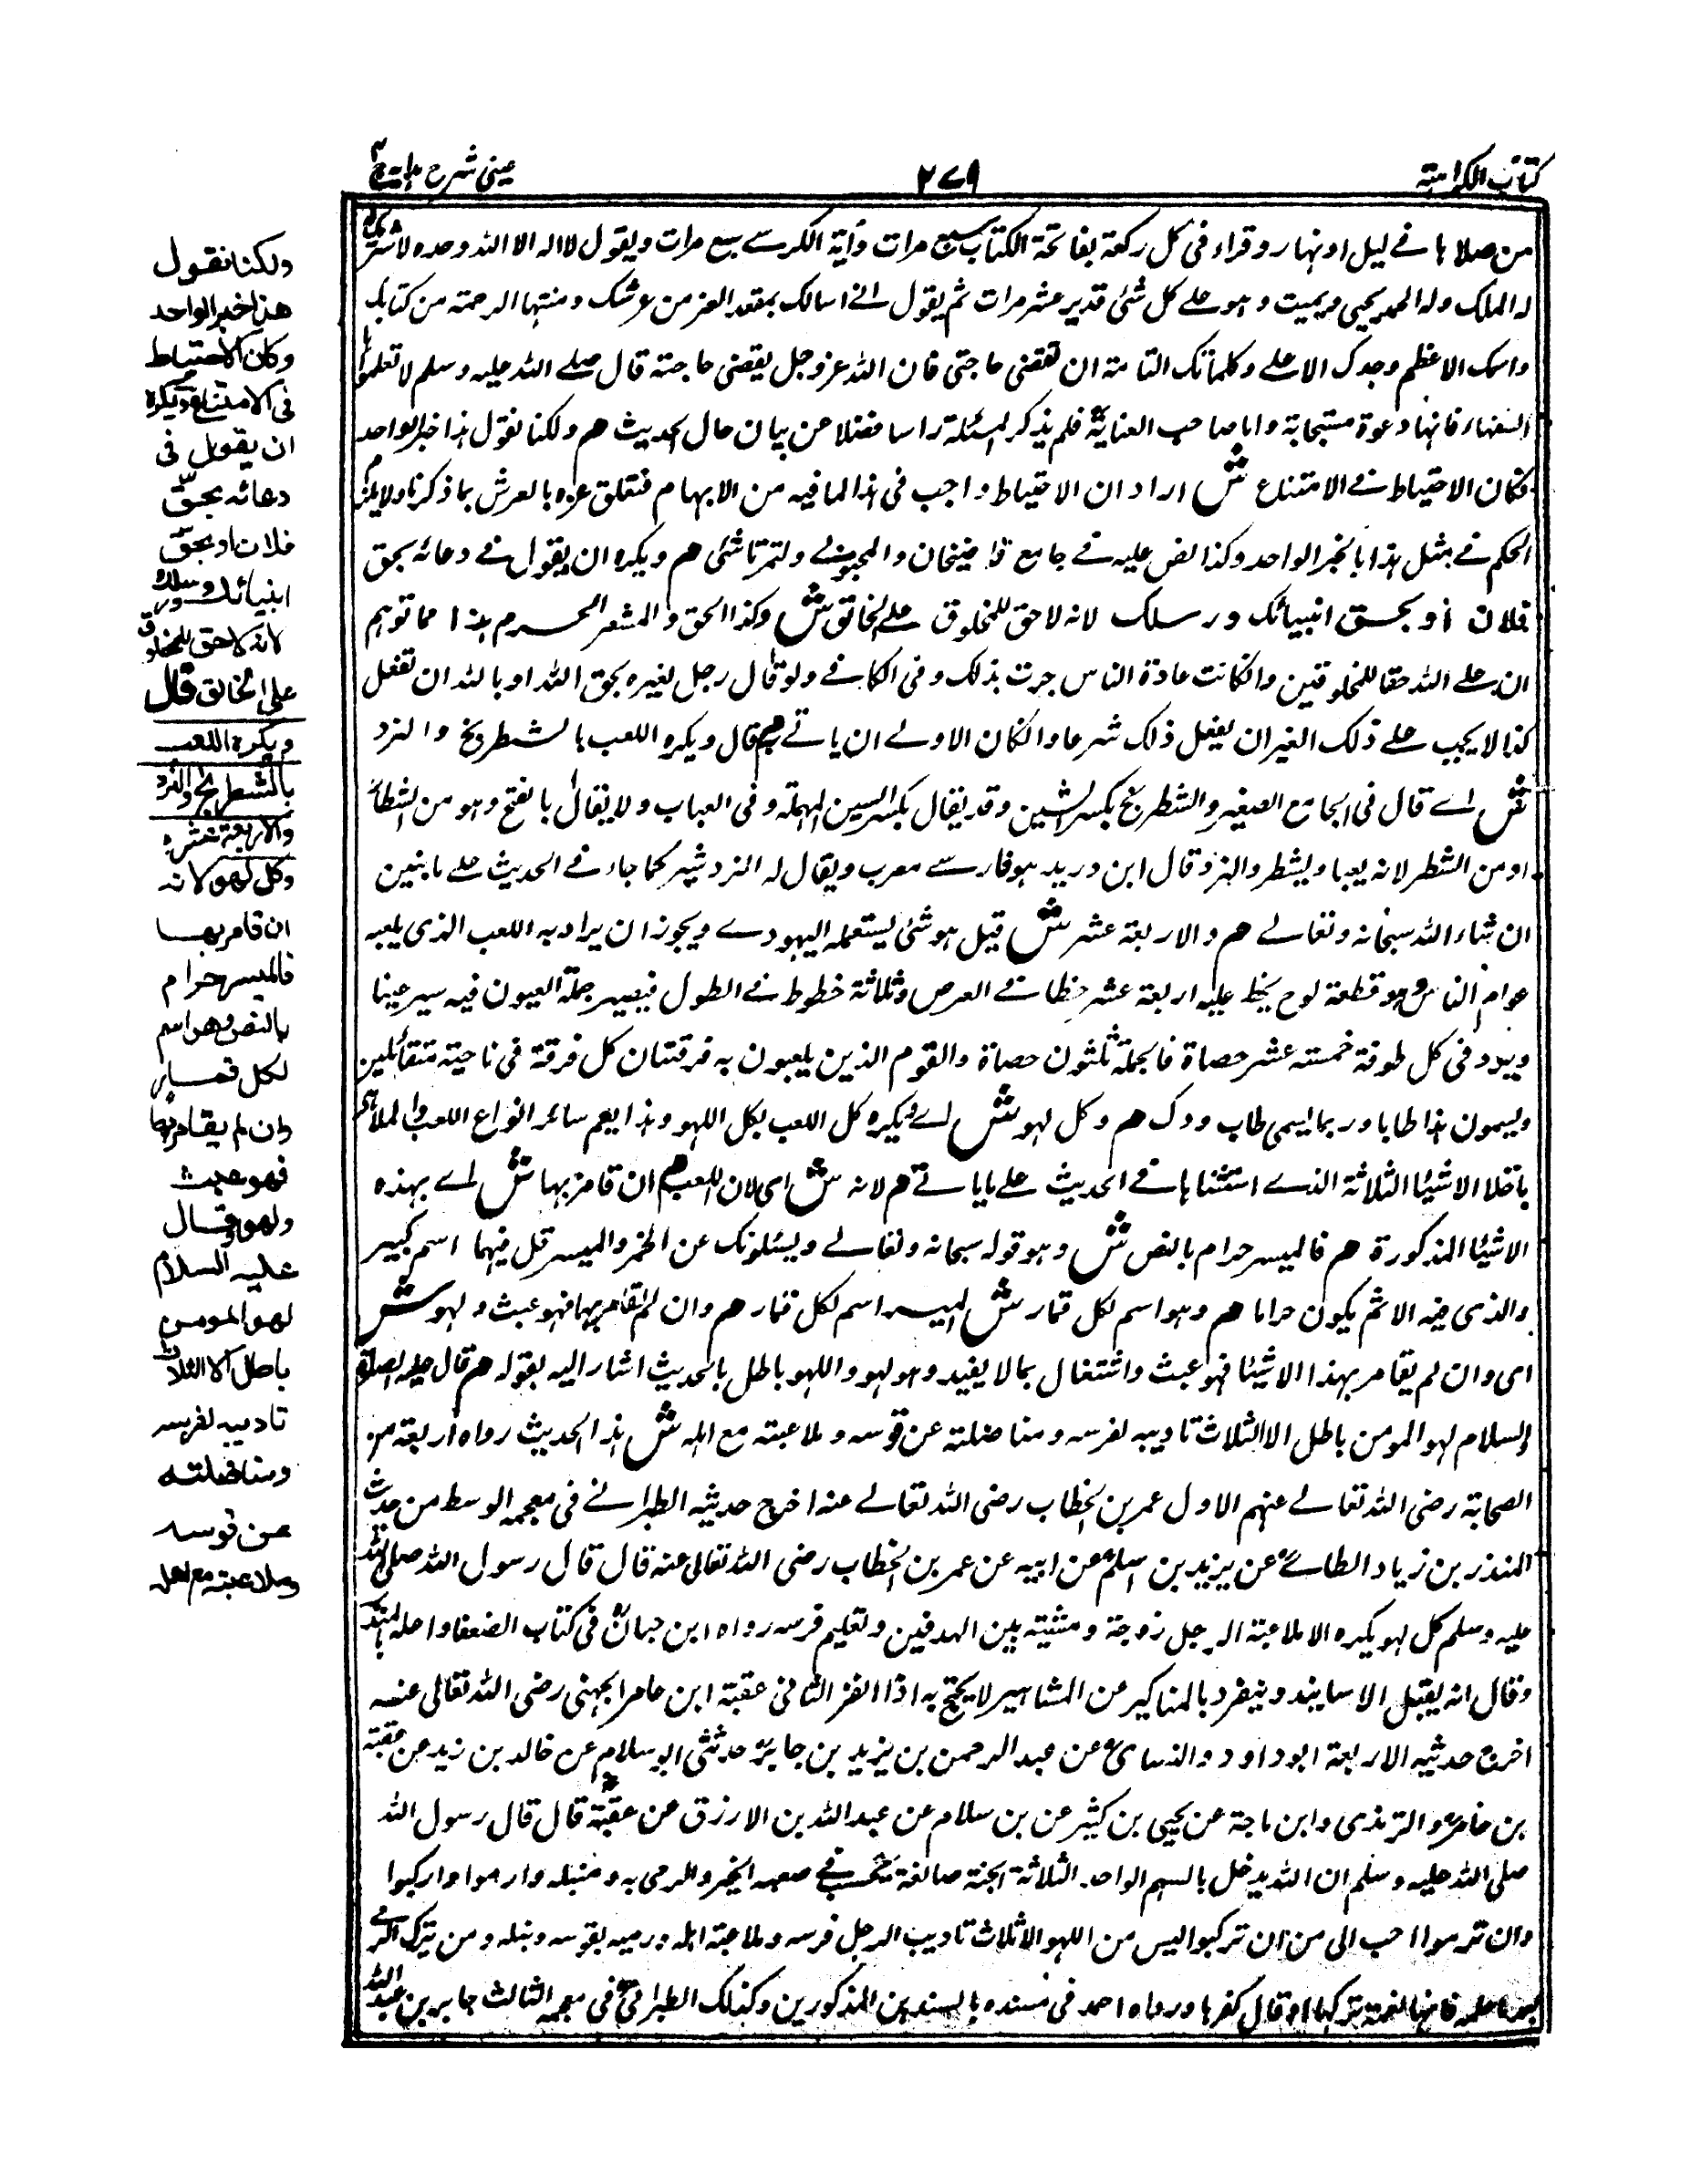 كتاب الكراهية
٢٧٩
عينى شرح هداية ج ٣
من صلاها فے ليل او نهار وقراء فى كل ركعة بفاتحة الكتاب سبع مرات وأية الكرسے سبع مرات ويقول لا اله الا الله وحده لا شريك
له الملك وله الحمد يحيى ويميت وهو علے كل شئ قدير عشر مرات ثم يقول انے اسالك بمقعد العز من عرشك ومنتها الرحمة من كتابك
واسمك الاعظم وجدك الاعلے وكلماتك التامة ان تقضى حاجتى فان الله عز وجل يقضى حاجته قال صلے الله عليه وسلم لا تعلموا
السفهاء فانها دعوة مستجابة واما صاحب العناية فلم يذكر المسئلة راسا فضلا عن بيان حال الحديث هم ولكنا نقول هذا خبر الواحد
فكان الاحتياط فے الامتناع ش اراد ان الاحتياط واجب فى هذا لما فيه من الابهام فتعلق عزه بالعرش بما ذكرنا ولا يلزم
الحكم فے مثل هذا بالخبر الواحد وكذا نص عليه فے جامع قاضيخان والمحبوبے ولتمرتاشى هم ويكره ان يقول فے دعائه بحق
فلان أو بحق انبيائك ورسلك لانه لا حق للمخلوق علے الخالق ش وكذا الحق والمشعر الحرم هذا مما توهم
ان علے الله حقا للمخلوقين وانكانت عادة الناس جرت بذلك وفى الكافے ولو قال رجل لغيره بحق الله او بالله ان تفعل
كذا لا يجب علے ذلك الغير ان يفعل ذلك شرعا وانكان الاولے ان ياتے به هم قال ويكره اللعب بالشطرنج والنرد
ش اے قال فى الجامع الصغير والشطرنج بكسر الشين وقد يقال بكسر السين المهملة وفى العباب ولا يقال بالفتح وهو من الشطأ
او من الشطر لانه يعبا ويشطر والنرد قال ابن دريد هو فارسے معرب ويقال له النردشير كما جاء فے الحديث علے ما نبين
ان شاء الله سبحانه وتعالے هم والاربعة عشر ش قيل هو شئ يستعمله اليهودے ويجوز ان يراد به اللعب الذى يلعبه
عوام الناس وهو قطعة لوح يخط عليه اربعة عشر خطا فے العرض وثلاثة خطوط فے الطول فيصير جملة العيون فيه سير عينا
ويود فى كل طوفة خمسته عشر حصاة فالجملة ثلثون حصاة والقوم الذين يلعبون به فرقتان كل فرقة فى ناحية متقابلين
ويسمون هذا طابا وربما يسمى طاب ودك هم وكل لهو ش اے ويكره كل اللعب بكل اللهو وهذا يعم سائر انواع اللعب والملاهى
ما خلا الاشيا الثلاثة الذے استثناها فے الحديث علے ما ياتے هم لانه ش اى لان اللعب هم ان قامر بها ش اے بهذه
الاشيا المذكورة هم فالميسر حرام بالنص ش وهو قوله سبحانه وتعالے ويسئلونك عن الخمر والميسر قل فيهما اسم كبير
والذى فيه الاثم يكون حراما هم وهو اسم لكل قمار ش الميسر اسم لكل قمار هم وان لم يقامر بها فهو عبث ولهو ش
اى وان لم يقامر بهذا الاشيا فهو عبث واشتغال بما لا يفيد وهو لهو واللهو باطل بالحديث اشار اليه بقوله هم قال عليه الصلوة
والسلام لهو المومن باطل الا الثلاث تاديبه لفرسه ومناضلته عن قوسه وملاعبته مع اهله ش هذا الحديث رواه اربعة من
الصحابة رضى الله تعالے عنهم الاول عمر بن الخطاب رضى الله تعالے عنه اخرج حديثه الطبرانے فى معجمه الوسط من حديث
المنذر بن زياد الطائے عن يزيد بن اسلم عن ابيه عن عمر بن الخطاب رضى الله تعالى عنه قال قال رسول الله صلى الله
عليه وسلم كل لهو يكره الا ملاعبة الرجل زوجة ومشيته بين الهدفين وتعليم فرسه رواه ابن حبان فى كتاب الضعفا واعله بالمنذر
وقال انه يقبل الاسانيد وينفرد بالمناكير عن المشاهير لا يحتج به اذا انفرد الثانى عقبة ابن عامر الجهنى رضى الله تعالى عنه
اخرج حديثه الاربعة ابو داود والنساى عن عبد الرحمن بن يزيد بن جابر حدثنى ابو سلام عن خالد بن زيد عن عقبة
بن عامر والترمذى وابن ماجة عن يحيى بن كثير عن بن سلام عن عبد الله بن الارزق عن عقبة قال قال رسول الله
صلى الله عليه وسلم ان الله يدخل بالسهم الواحد الثلاثة الجنة صانعه يحتسب فے صنعه الخير والرمى به ومنبله وارموا واركبوا
وان ترموا احب الى من ان تركبوا ليس من اللهو الا ثلاث تاديب الرجل فرسه وملاعبة اهله ورميه بقوسه ونبله ومن ترك الرمے
بعد ما علمه فانها نعمة تركها او قال كفرها ورواه احمد فى مسنده بالسندين المذكورين وكذلك الطبرانى فى معجمه الثالث جابر بن عبد الله
ولكنا نقول
هذا خبر الواحد
وكان الاحتياط
فى الامتناع ويكره
ان يقول فى
دعائه بحق
فلان او بحق
انبيائك ورسلك
لانه لا حق للمخلوق
على الخالق قال
ويكره اللعب
بالشطرنج والنرد
والاربعة عشر
وكل لهو لانه
ان قامر بها
فالميسر حرام
بالنص وهو اسم
لكل قمار
وان لم يقامر بها
فهو عبث
ولهو وقال
عليه السلام
لهو المومن
باطل الا الثلاث
تاديبه لفرسه
ومناضلته
عن قوسه
وملاعبته مع اهله